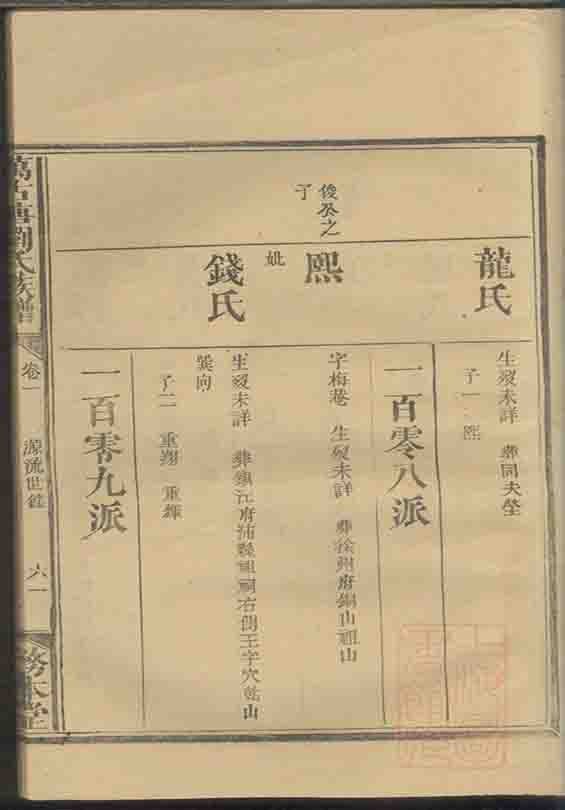 龍氏
生歿未詳 葬同夫塋
子一 熙
一百零八派
俊公之
子
熙
字梅菴 生歿未詳 葬徐州府銅山祖山
妣
錢氏
生歿未詳 葬鎮江府沛縣祖祠右側王字穴乾山
巽向
子二 重翔 重輝
一百零九派
劉氏族譜
卷一
源流世錄
六一
務本堂